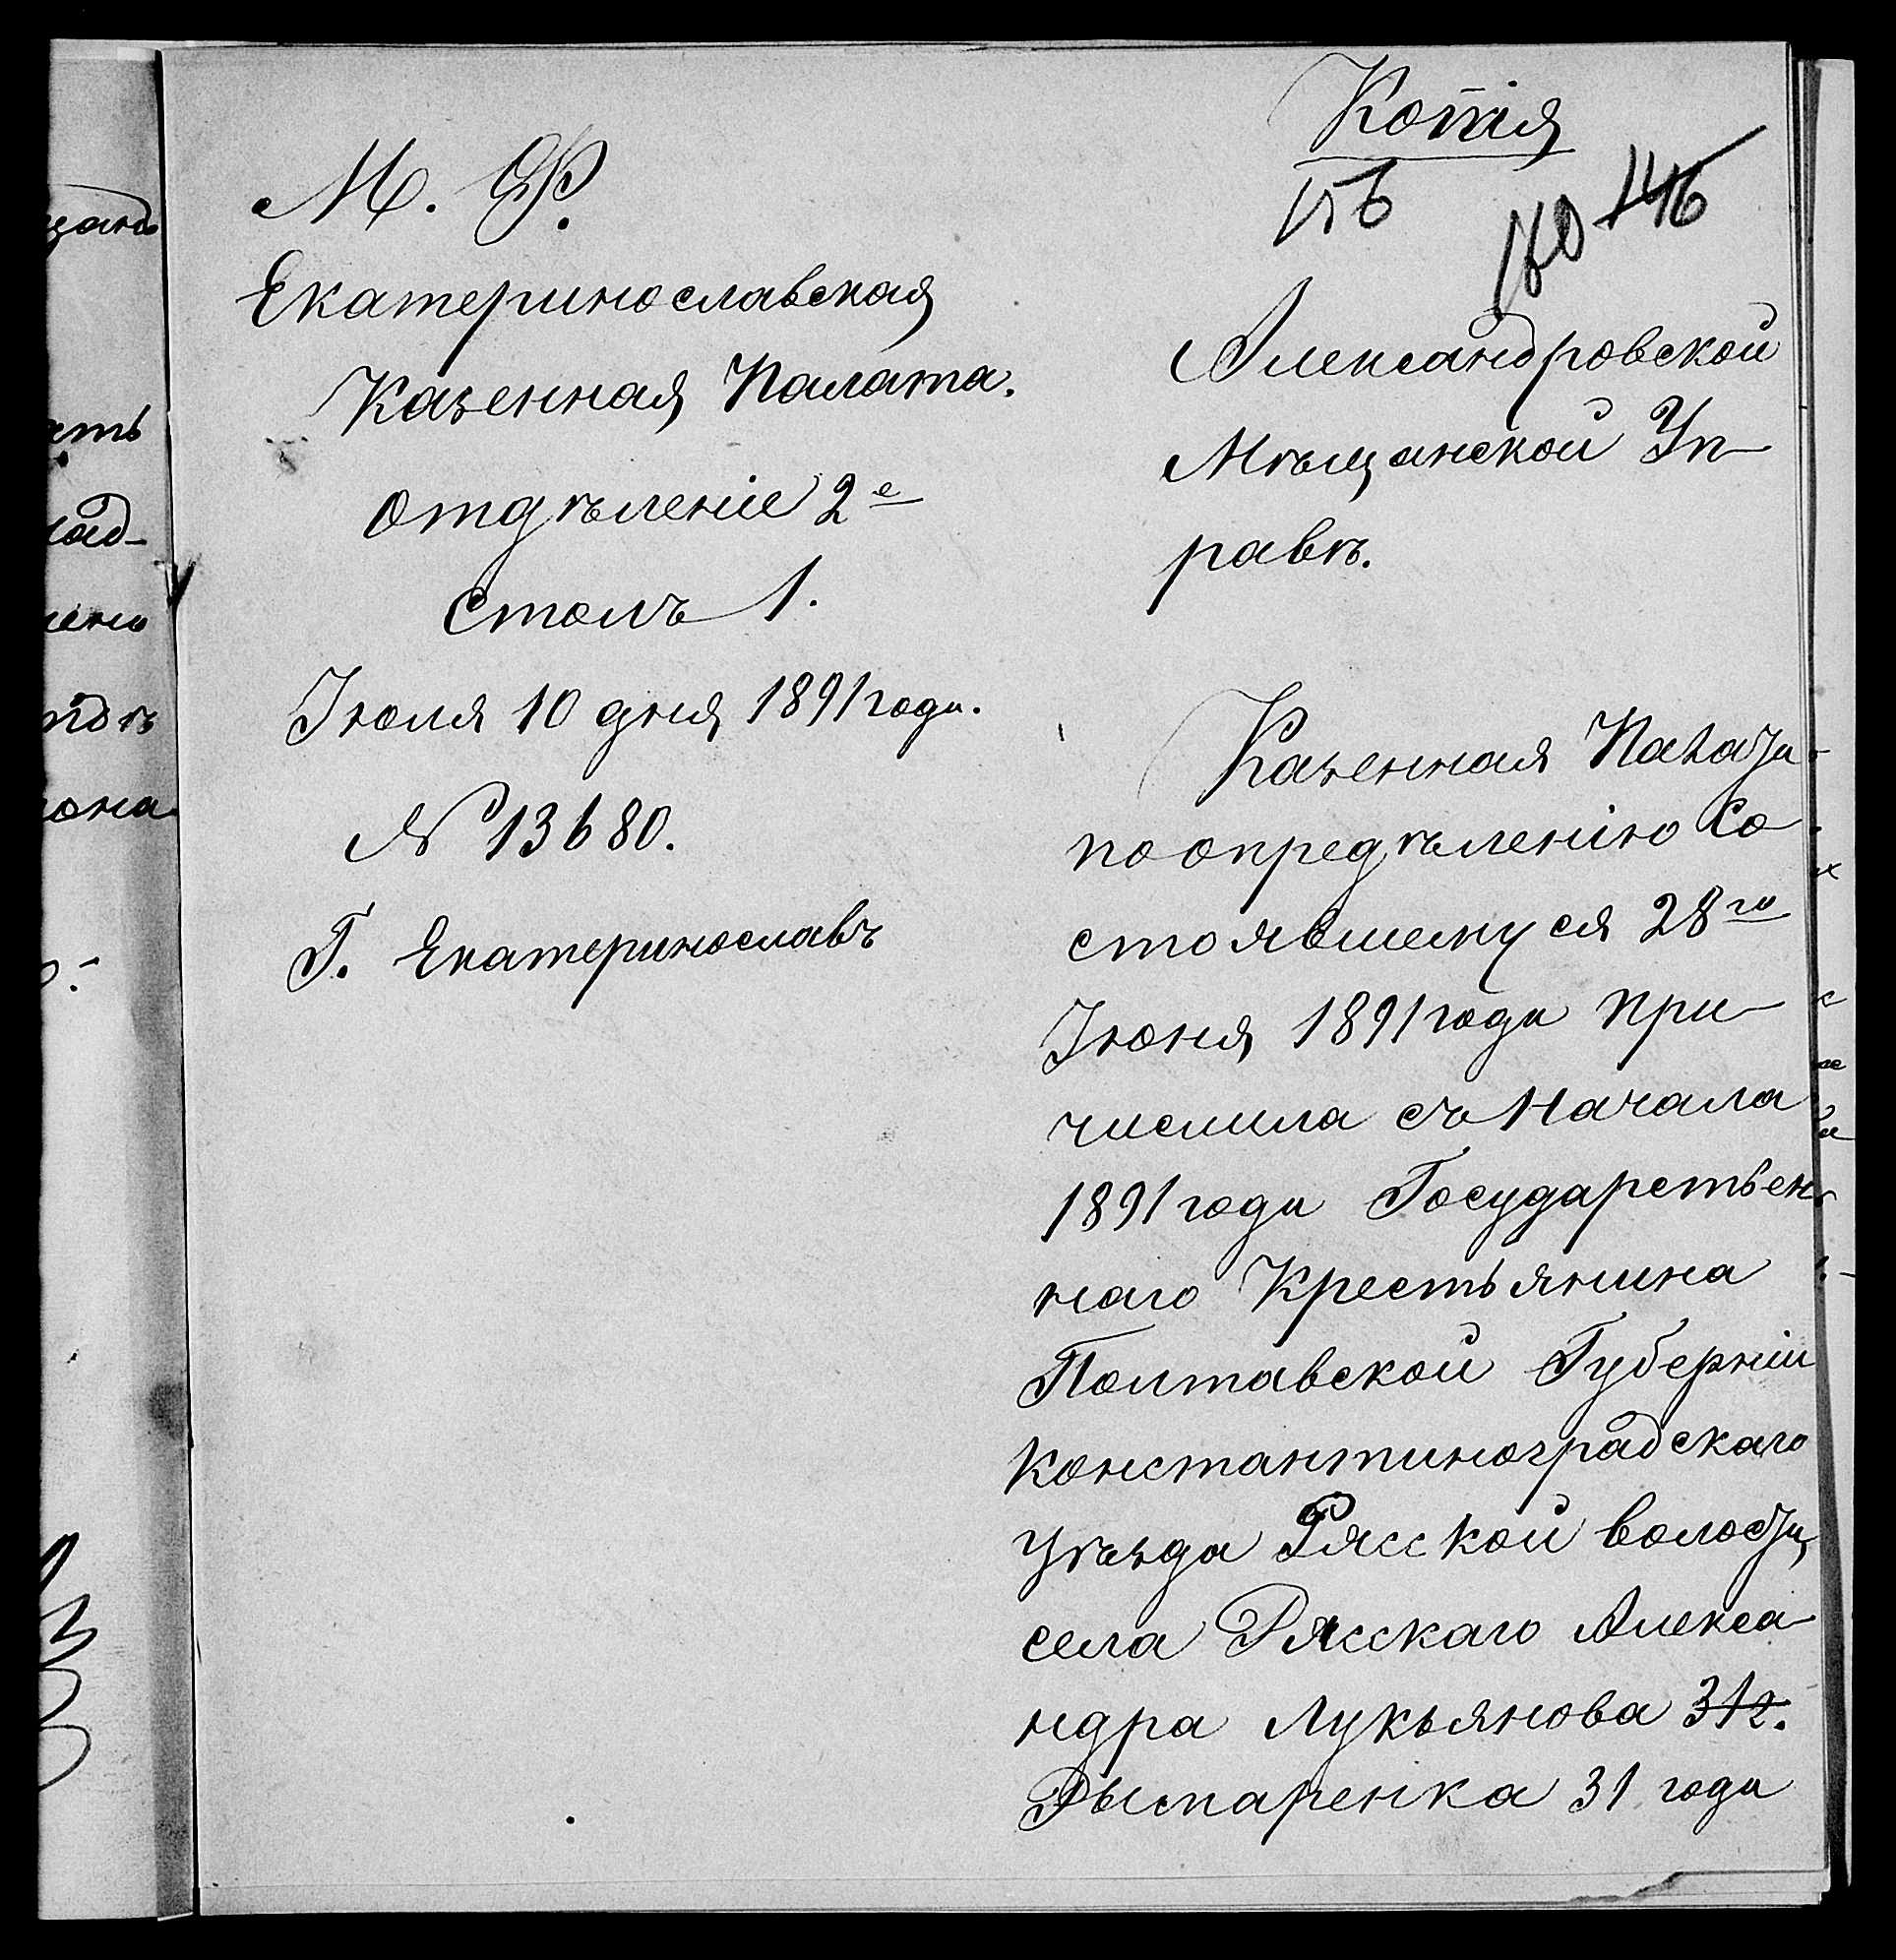 Копія
156
160 146
М. Ф.
Екатеринославская
Казенная Палата.
Отдѣленіе 2е
Столъ 1.
Іюля 10 дня 1891 года.
№ 13680.
Г. Екатеринославъ
Александровской
Мѣщанской Уп-
равѣ.
Казенная Палата
по опредѣленію Со-
стоявшемуся 28го
Іюня 1891 года при-
числила съ Начала
1891 года Государствен-
наго Крестьянина
Полтавской Губерніи
Константиноградскаго
уѣзда Рясской волости,
села Рясскаго Алекса-
ндра Лукьянова 31г.
Рыпаренка 31 года